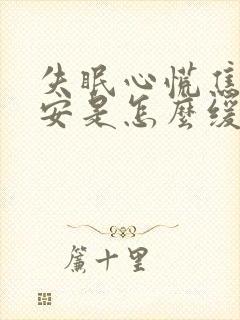 失眠心慌焦
安是怎麼緩
簾十里